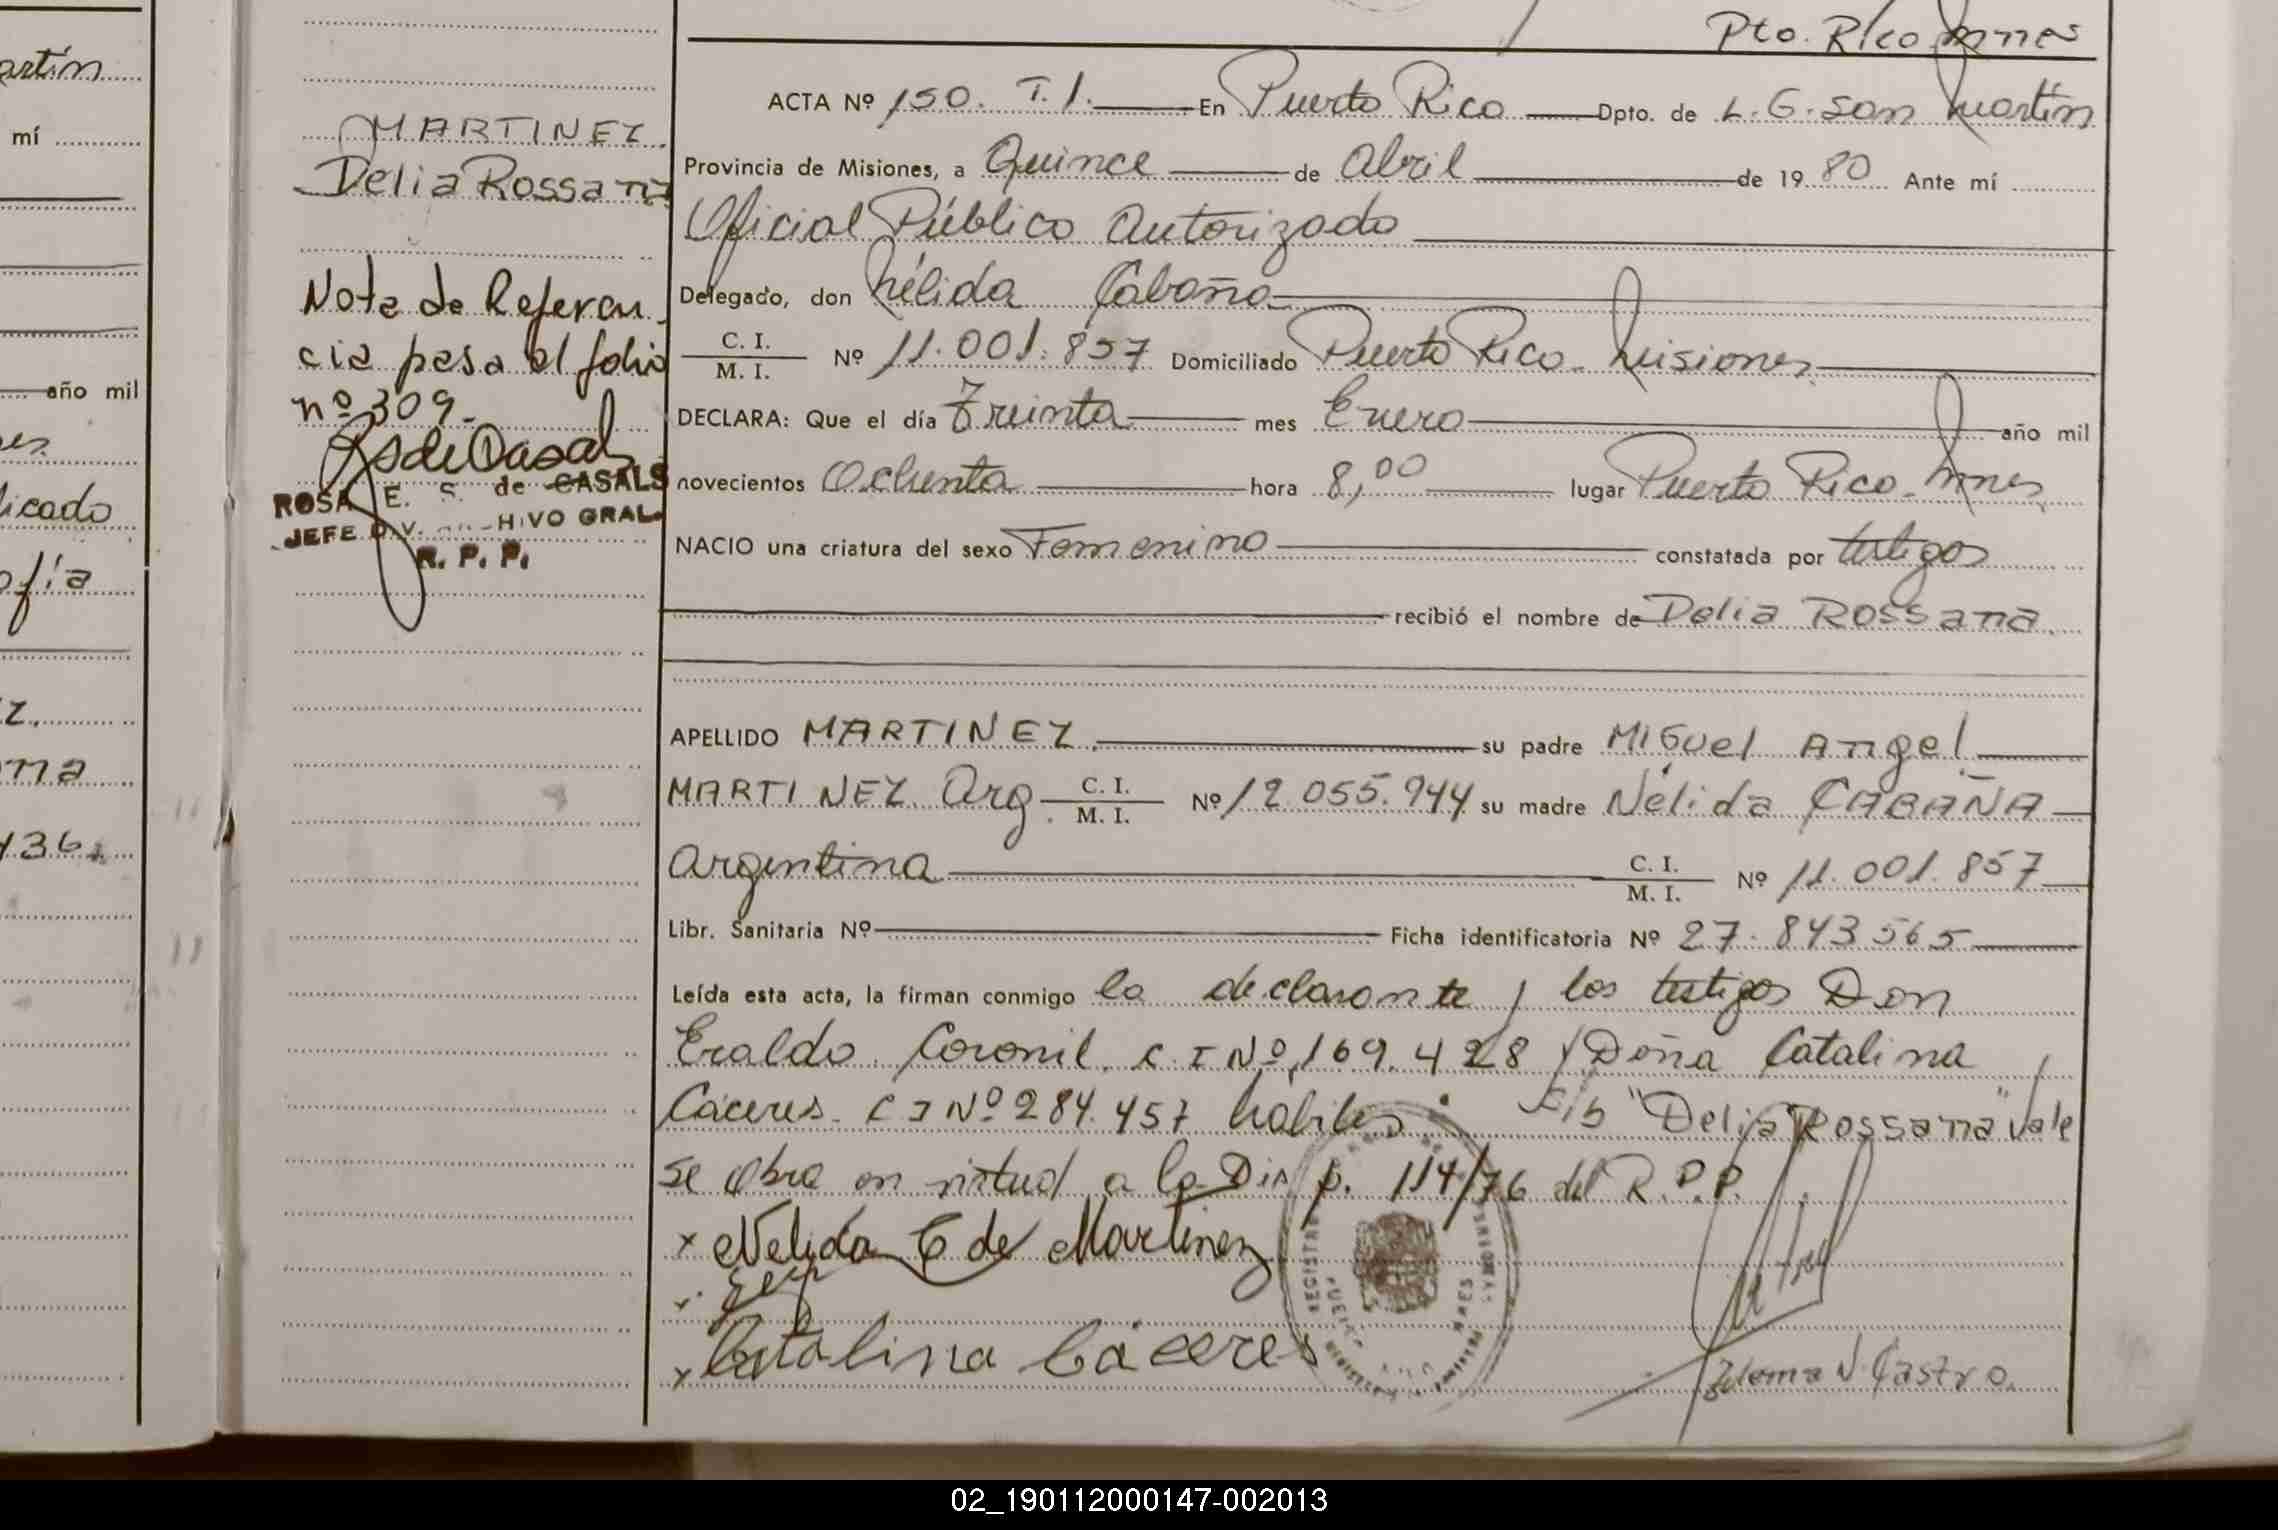 artín
mí
año mil
es.
licado
ofía
z.
na
436.
MARTINEZ.
Delia Rossana
Nota de Referen-
cia pasa al folio
nº 309.-
RSdeCasals
ROSA E. S. de CASALS
JEFE DIV. HIVO GRAL.
R. P. P.
Pto. Rico Mnes
ACTA Nº 150. T. I. En Puerto Rico Dpto. de L. G. San Martín
Provincia de Misiones, a Quince de Abril de 19 80 Ante mí
Oficial Público Autorizado
Delegado, don Nélida Cabaña
C. I.
M. I. Nº 11.001.857 Domiciliado Puerto Rico. Misiones
DECLARA: Que el día Treinta mes Enero año mil
novecientos Ochenta hora 8,00 lugar Puerto Rico. Mnes
NACIO una criatura del sexo Femenino constatada por testigos
recibió el nombre de Delia Rossana.
APELLIDO MARTINEZ. su padre Miguel Angel
MARTINEZ Arg. C. I.
M. I. Nº 12.055.944 su madre Nélida CABAÑA
Argentina C. I.
M. I. Nº 11.001.857
Libr. Sanitaria Nº Ficha identificatoria Nº 27.843565
Leída esta acta, la firman conmigo la declarante y los testigos Don
Eraldo Coronil. C I Nº 169.428 y Doña Catalina
Cáceres. C I Nº 284.457 hábiles. "Delia Rossana" Vale
se obra en virtud a la Disp. 114/76 del R.P.P.
x Nelida C de Martinez
x Catalina Cáceres
V. Castro.
02_190112000147-002013